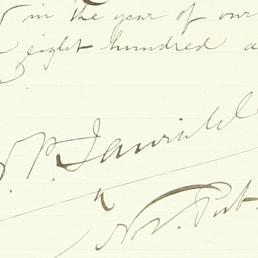 in the year of our
eight hundred a
Not. Pub.